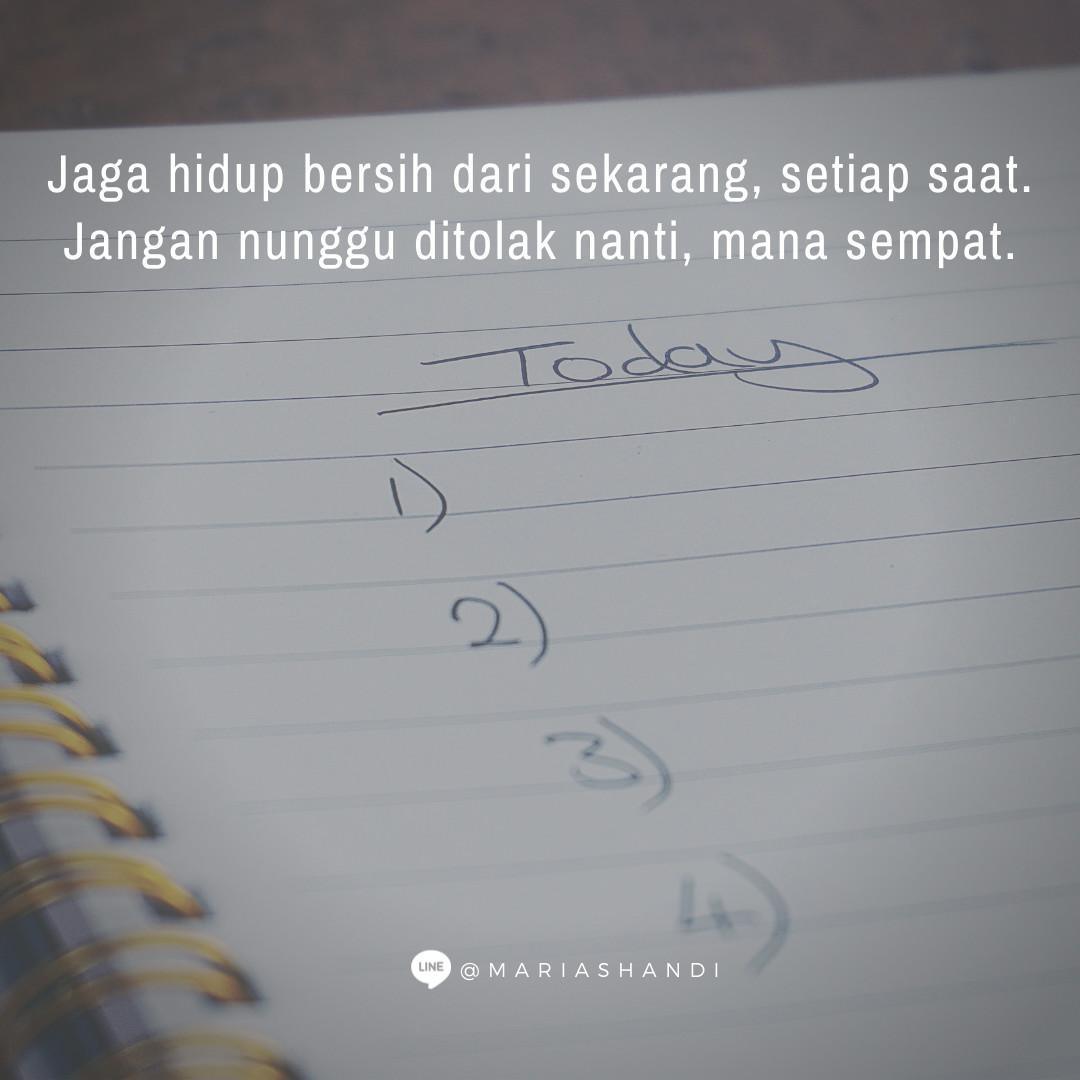 Jaga hidup bersih dari sekarang, setiap saat.
Jangan nunggu ditolak nanti, mana sempat.
Today
1)
2)
3)
4)
LINE @MARIASHANDI